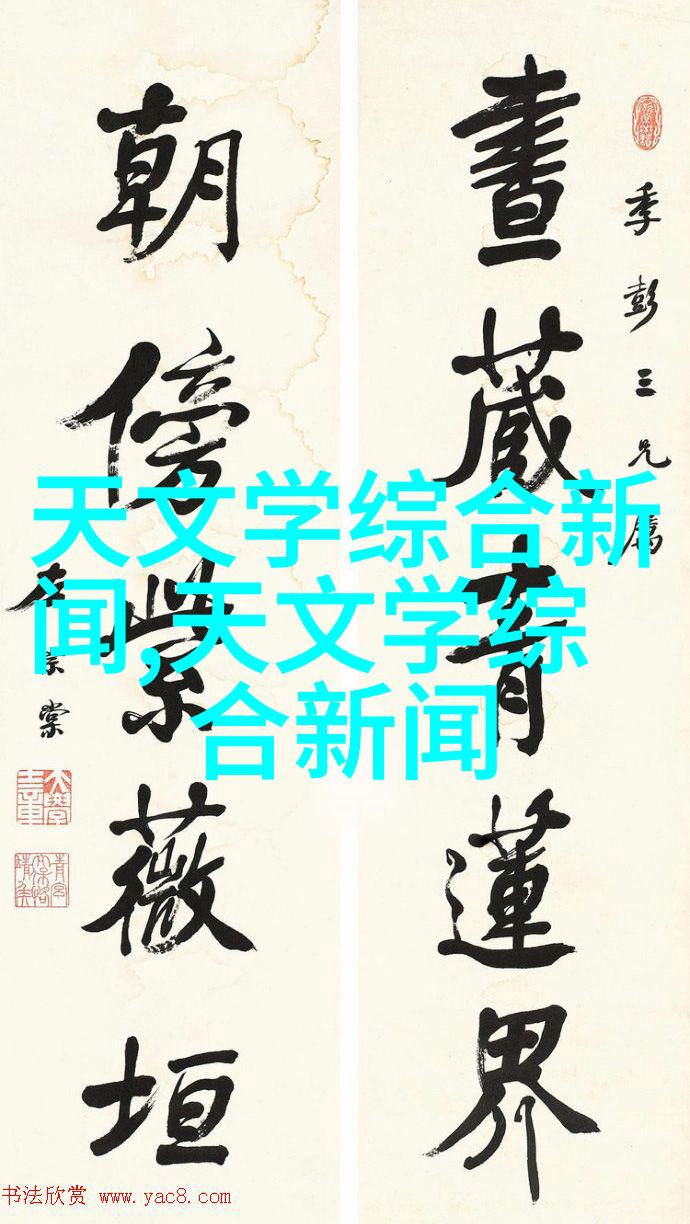 畫藏青蓮界
季彭三兄屬
朝傍紫薇垣
左宗棠
天文学综合新
闻,天文学综
合新闻
书法欣赏 www.yac8.com